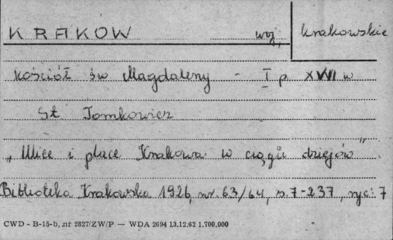 KRAKÓW woj. krakowskie
kościół św Magdaleny - I p. XVII w
St Tomkowicz
„Ulice i place Krakowa w ciągu dziejów".
Biblioteka Krakowska 1926, nr. 63/64, s. 7-237, ryc. 7
CWD - B-15-b, zır 2827/ZW/P — WDA 2694 13.12.62 1.700.000